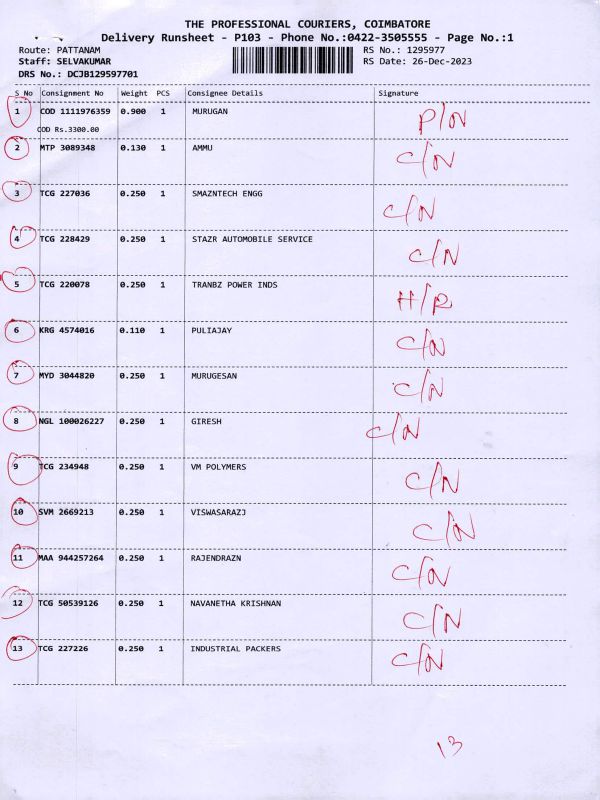 THE PROFESSIONAL COURIERS, COIMBATORE
Delivery Runsheet - P103 - Phone No.:0422-3505555 - Page No.:1
Route: PATTANAM RS No.: 1295977
Staff: SELVAKUMAR RS Date: 26-Dec-2023
DRS No.: DCJB129597701
S No Consignment No Weight PCS Consignee Details Signature
1 COD 1111976359 0.900 1 MURUGAN P/N
COD Rs.3300.00
2 MTP 3089348 0.130 1 AMMU C/N
3 TCG 227036 0.250 1 SMAZNTECH ENGG C/N
4 TCG 228429 0.250 1 STAZR AUTOMOBILE SERVICE C/N
5 TCG 220078 0.250 1 TRANBZ POWER INDS H/R
6 KRG 4574016 0.110 1 PULIAJAY C/N
7 MYD 3044820 0.250 1 MURUGESAN C/N
8 NGL 100026227 0.250 1 GIRESH C/N
9 TCG 234948 0.250 1 VM POLYMERS C/N
10 SVM 2669213 0.250 1 VISWASARAZJ C/N
11 MAA 944257264 0.250 1 RAJENDRAZN C/N
12 TCG 50539126 0.250 1 NAVANETHA KRISHNAN C/N
13 TCG 227226 0.250 1 INDUSTRIAL PACKERS C/N
13